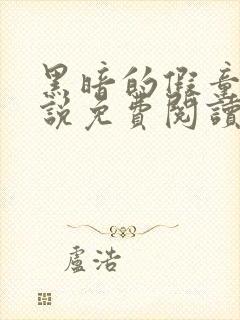 黑暗的假童
說免費閱讀
盧浩